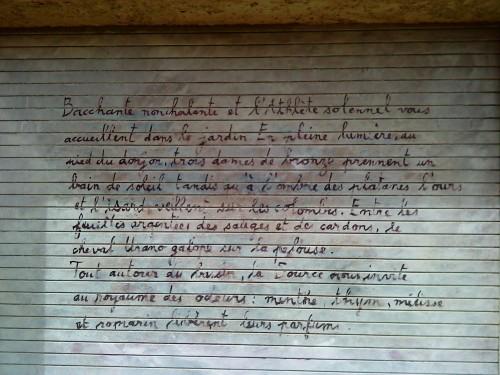 Bacchante nonchalente et l'Athlète solennel vous
accueillent dans le jardin En pleine lumière, au
pied du donjon, trois dames de bronze prennent un
bain de soleil tandis qu'à l'ombre des platanes l'ours
et l'isard veillent sur les colombes. Entre les
feuilles argentées des sauges et de cardons, le
cheval Urano galope sur la pelouse.
Tout autour du bassin, la Source vous invite
au royaume des odeurs : menthe, thym, mélisse
et romarin libèrent leurs parfums.